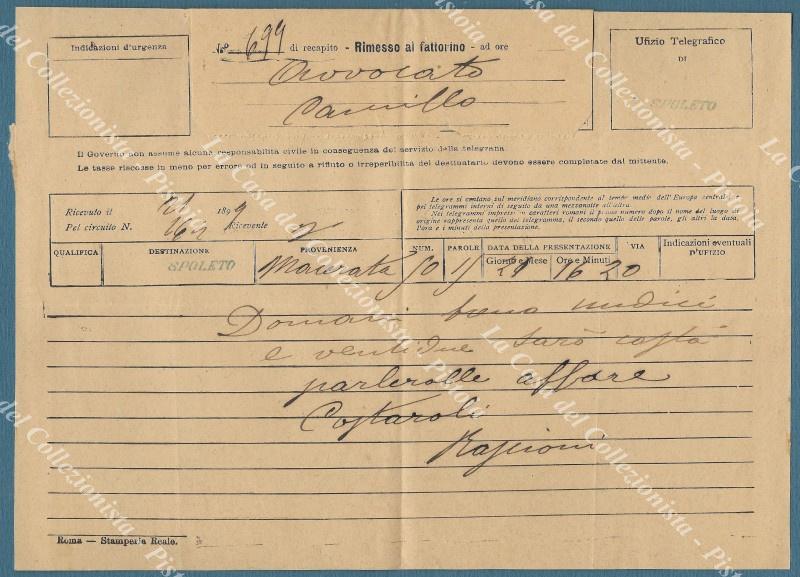 Indicazioni d'urgenza
N.º 699 di recapito - Rimesso al fattorino - ad ore
Avvocato
Camillo
Ufizio Telegrafico
DI
SPOLETO
Il Governo non assume alcuna responsabilità civile in conseguenza del servizio della telegrafia.
Le tasse riscosse in meno per errore od in seguito a rifiuto o irreperibilità del destinatario devono essere completate dal mittente.
Ricevuto il 189
Pel circuito N. Ricevente
Le ore si contano sul meridiano corrispondente al tempo medio dell'Europa centrale e
pei telegrammi interni di seguito da una mezzanotte all'altra.
Nei telegrammi impressi in caratteri romani il primo numero dopo il nome del luogo di
origine rappresenta quello del telegramma, il secondo quello delle parole, gli altri la data,
l'ora e i minuti della presentazione.
QUALIFICA DESTINAZIONE PROVENIENZA NUM. PAROLE DATA DELLA PRESENTAZIONE VIA Indicazioni eventuali
Giorno e Mese Ore e Minuti D'UFIZIO
SPOLETO Macerata 50 15 29 16 20
Domani treno undici
e ventidue sarò costà
parlerolle affare
Costaroli
Roma — Stamperia Reale.
La Casa del Collezionista - Pistoia